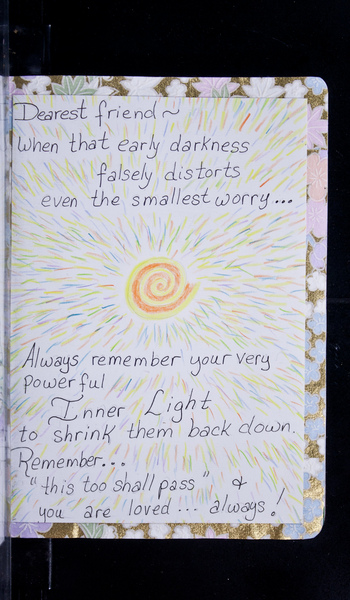 Dearest friend ~
When that early darkness
falsely distorts
even the smallest worry...
Always remember your very
powerful
Inner Light
to shrink them back down.
Remember...
"this too shall pass" &
you are loved ... always!